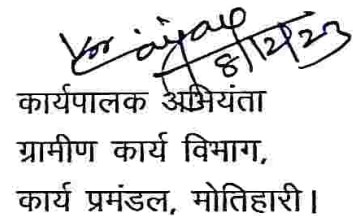 8/2/23
कार्यपालक अभियंता
ग्रामीण कार्य विभाग,
कार्य प्रमंडल, मोतिहारी।